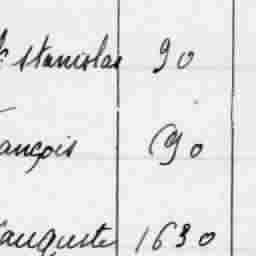 stanislas 90
ançois 90
auguste 1630